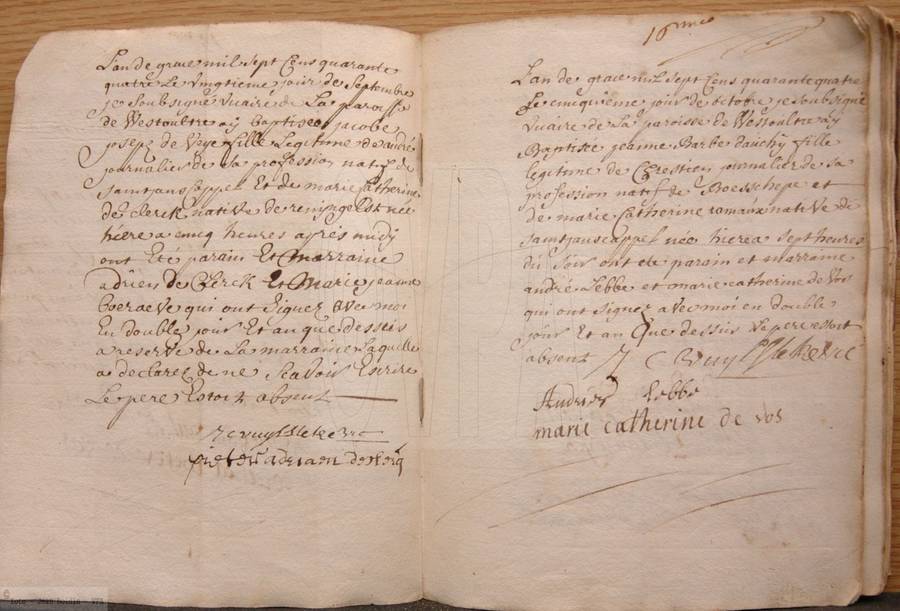 Lan de grace mil sept Cens quarante
quatre Le vingtieme jour de Septembre
je soubsigné vicaire de La paroisse
de Westoultre ay baptisé jacobe
josepe de fille Legitime de andré
journalier de sa profession natif de
saintjanscappel Et de marie Catherine
de clerck native de reningelst née
hiere a cincq heures apres midy
ont Eté parain Et marraine
adrien de Clerck Et Marie jeanne
qui ont signez avec moi
En double jour Et an que dessus
a reserve de La marraine Laquelle
a declarez de ne scavoir Escrire
Le pere Estoit absent
J C vuylsteker vic
pieter adriaen de
16me
Lan de grace mil sept Cens quarante quatre
Le cincquieme jour de octobre je soubsigné
vicaire de La paroisse de Westoultre ay
Baptisé jeanne Barbe dauchy fille
legitime de Crestien journalier de sa
profession natif de Boeschepe et
de marie Catherine native de
saintjanscappel née hier a sept heures
du soir ont eté parain et marraine
andrié Lebbe et marie catherine de Vos
qui ont signez avec moi en double
jour Et an Que dessus Le pere estoit
absent J C vuylsteker vic
Andries Lebbe
marie catherine de vos